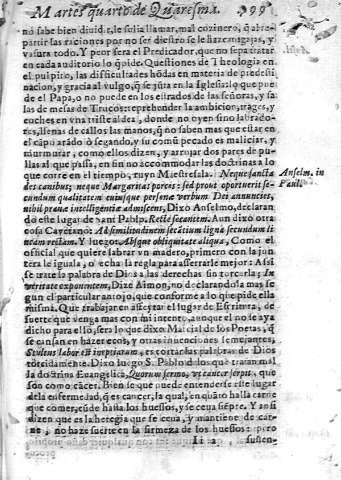 Martes quarto de Quaresma. 199
no sabe bien diuidir, le suelen llamar, mal cozinero, que a re-
partir las raciones por no ser diestro se le hazen migajas, y
va sura todo. Y peor sera el Predicador, que no sepa tratar
en cada auditorio lo que pide. Questiones de Theologia en
el pulpito, las difficultades hondas en materia de predesti
nacion, y gracia al vulgo, que se jūta en la Iglesia lo que pue
de el Papa, o no puede en los estrados de las señoras, y sa
las de mesas de Trucos: reprehender la ambicion, trages, y
coches en vna triste aldea, donde no oyen sino labrado-
res, llenas de callos las manos, que no saben mas que estar en
el cāpo arādo ò segando, y su comū pecado es maliciar, y
murmurar, como ellos dizen, y arrojar dos pares de pu-
llas al que passa, en fin no accommodar las doctrinas a lo
que corre en el tiempo, ruyn Maestresala. Neque sancta
des canibus; neque Margaritas porcis: sed prout oportuerit se-
cundum qualitatem cuiusque persona verbum Dei annuncies,
nihil praua intelligentia admiscens, Dixo Anselmo, declaran
do este lugar de sant Pablo. Recte secantem. Aun dixo otra
cosa Cayetano: Ad similitudinem secatium ligna secundum li
neam rectam. Y luego: Absque obliquitate aliqua, Como el
official que quiere labrar vn madero, primero con la jun
tera le iguala, o le echa la regla para asserrarle mejor: Assi
se trate la palabra de Dios a las derechas sin torcerla; In
veritate exponentem, Dixo Aimon, no declarandola mas se
gun el particular antojo, que conforme a lo que pide ella
misma. Que trabajar en assestar el lugar de Escritura, de
suerte que venga mas con mi intento, aunque el no le aya
dicho para ello, sera lo que dixo Marcial de los Poetas, que
se cansan en hazer ecos, y otras inuenciones semejantes,
Stultus labor est ineptiarum, es cortar las palabras de Dios
torcidamente. Dixo luego S. Pablo de los que tratan mal
la doctrina Euangelica, Quorum sermo, vt cancer serpit, que
son como cācer. Bien se que puede entenderse este lugar
de la enfermedad, que es cancer, la qual, en quāto halla carne
que comer, cūde hasta los huessos, y se ceua siēpre. Y assi
dizen que es la heregia que se ceua, y mantiene de car-
ne, no haze suerte en la firmeza de los huessos: pero
Ii 2 susten-
Anselm. in
Paul.